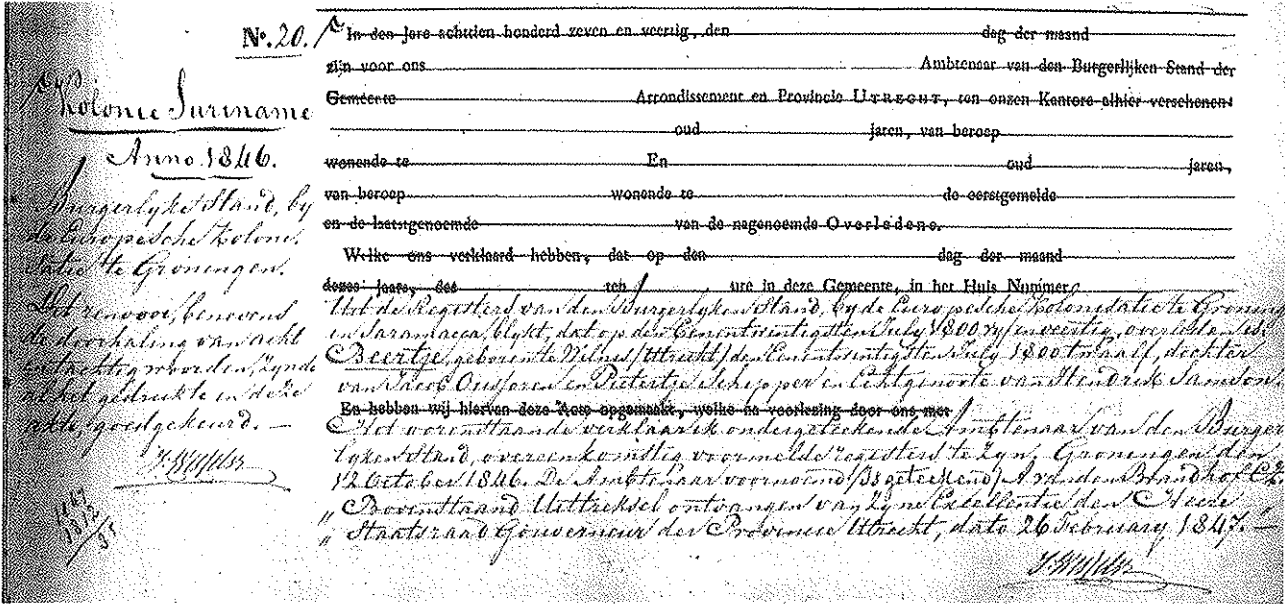 No. 20.
Kolonie Suriname
Anno 1846.
Burgerlyke Stand, by
de Europesche Koloni-
satie te Groningen.
Het renvooi, benevens
de doorhaling van acht
en tachtig woorden, zynde
al het gedrukte in deze
akte, goedgekeurd. —
In den jare achttien honderd zeven en veertig, den dag der maand
zijn voor ons Ambtenaar van den Burgerlijken Stand der
Gemeente Arrondissement en Provincie UTRECHT, ten onzen Kantore alhier verschenen:
oud jaren, van beroep
wonende te En oud jaren,
van beroep wonende te de eerstgemelde
en de laatstgenoemde van de nagenoemde Overledene.
Welke ons verklaard hebben, dat op den dag der maand
dezes jaars, des ten ure in deze Gemeente, in het Huis Nummer
Uit de Registers van den Burgerlyken Stand, by de Europesche Kolonisatie te Groning
en Saramacca, blykt, dat op den Eenentwintigsten July 1800 vyf en veertig, overleden is:
Beertje, geboren te Wilnis (Utrecht) den Eenentwintigsten July 1800 twaalf, dochter
van Jacob Ousjoren en Pietertje Schipper en Echtgenoote van Hendrik Samson
En hebben wij hiervan deze Acte opgemaakt, welke na voorlezing door ons met
Het vorenstaande verklaar ik ondergeteekende Ambtenaar van den Burger
lyken Stand, overeenkomstig voormelde registers te zyn, Groningen den
12 October 1846. De Ambtenaar voornoemd (Is geteekend) A van den Brandhof Cz.
„ Bovenstaand Uittreksel ontvangen van Zyne Excellentie den Heere
„ Staatsraad Gouverneur der Provincie Utrecht, dato 26 February 1847. —